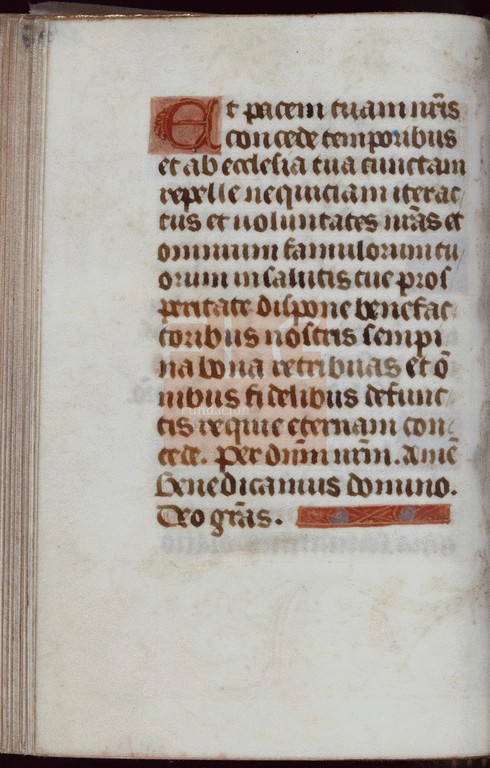 Et pacem tuam nr̄is
concede temporibus
et ab ecclesia tua cunctam
repelle nequiciam iterac
tus et uoluntates nr̄as et
omnium famulorum tu
orum in salutis tue pros
peritate dispone benefac
toribus nostris sempi
na bona retribuas et õ
nibus fidelibus defunc
tis requie eternam con
cede. Per dñm nr̄m. Amē
Benedicamus domino.
Deo gr̄as.
fundación